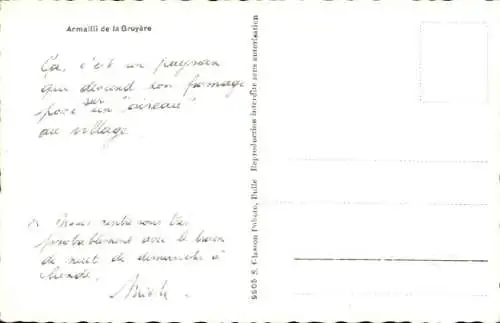 Armailli de la Gruyère
Ça, c'est un paysan
qui descend son fromage
posé sur un "oiseau"
au village
Nous rentrerons très
probablement avec le train
de nuit de dimanche à
9905 S. Glasson Potozo, Bulle Reproduction interdite sans autorisation